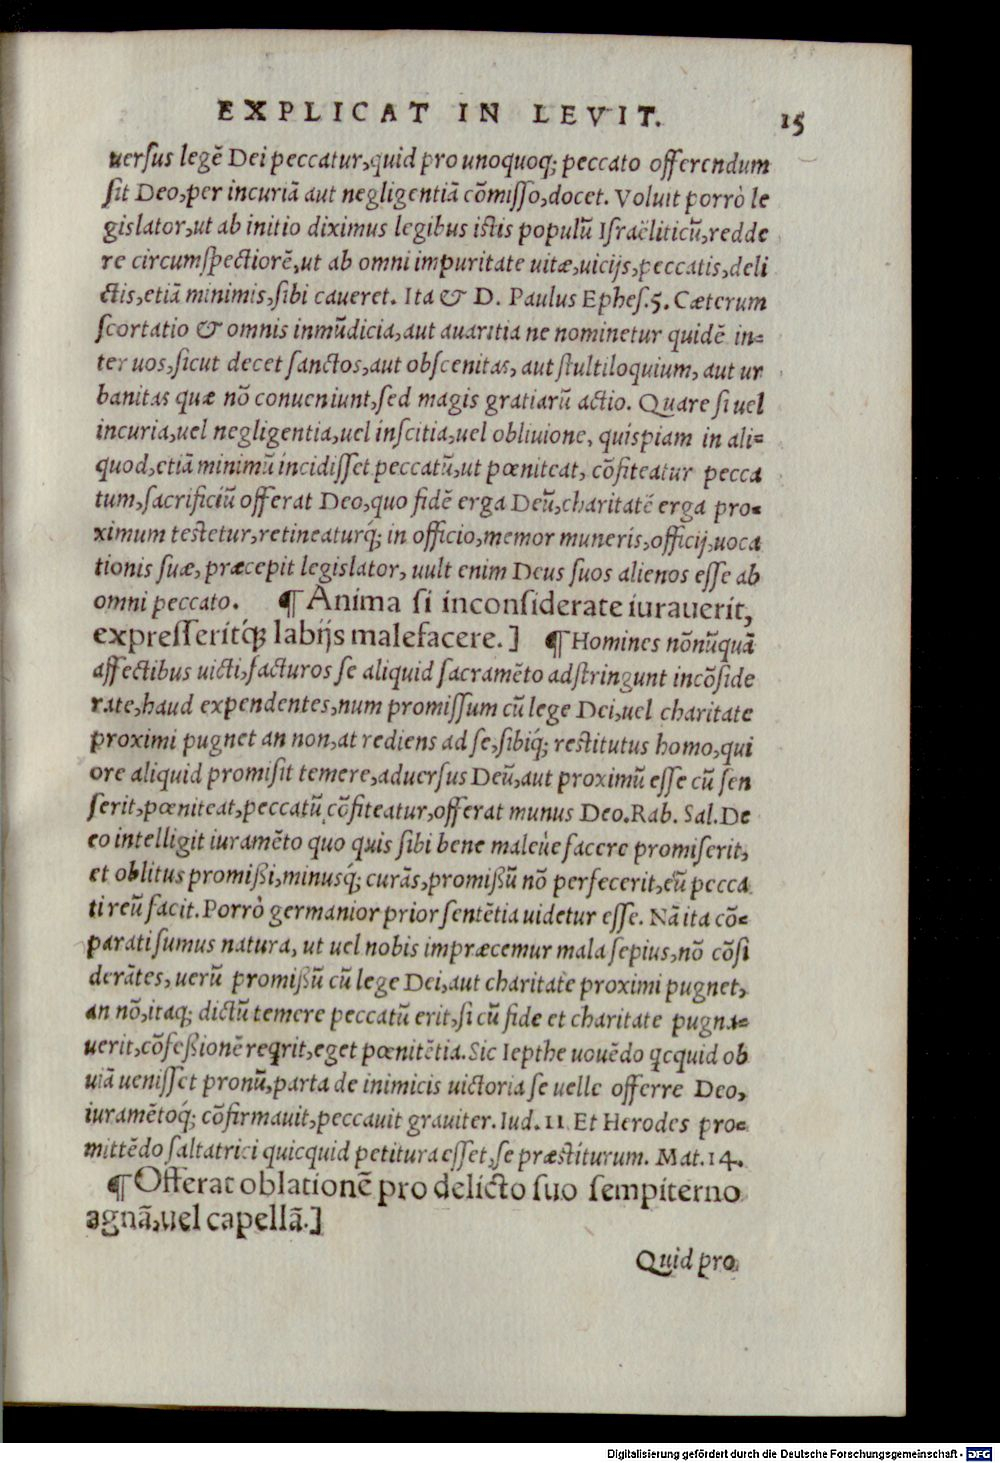 EXPLICAT IN LEVIT. 15
uersus legẽ Dei peccatur, quid pro unoquoq; peccato offerendum
sit Deo, per incuriã aut negligentiã cõmisso, docet. Voluit porrò le
gislator, ut ab initio diximus legibus istis populũ Israëliticũ, redde
re circumspectiorẽ, ut ab omni impuritate uitæ, uicijs, peccatis, deli
ctis, etiã minimis, sibi caueret. Ita & D. Paulus Ephes. 5. Cæterum
scortatio & omnis inmũdicia, aut auaritia ne nominetur quidẽ in=
ter uos, sicut decet sanctos, aut obscenitas, aut stultiloquium, aut ur
banitas quæ nõ conueniunt, sed magis gratiarũ actio. Quare si uel
incuria, uel negligentia, uel inscitia, uel obliuione, quispiam in ali=
quod, etiã minimũ incidisset peccatũ, ut pœniteat, cõfiteatur pecca
tum, sacrificiũ offerat Deo, quo fidẽ erga Deũ, charitatẽ erga pro=
ximum testetur, retineaturq́; in officio, memor muneris, officij, uoca
tionis suæ, præcepit legislator, uult enim Deus suos alienos esse ab
omni peccato. ¶ Anima si inconsiderate iurauerit,
expresseritq́; labijs malefacere.] ¶ Homines nõnũquã
affectibus uicti, facturos se aliquid sacramẽto adstringunt incõside
rate, haud expendentes, num promissum cũ lege Dei, uel charitate
proximi pugnet an non, at rediens ad se, sibiq́; restitutus homo, qui
ore aliquid promisit temere, aduersus Deũ, aut proximũ esse cũ sen
serit, pœniteat, peccatũ cõfiteatur, offerat munus Deo. Rab. Sal. De
eo intelligit iuramẽto quo quis sibi bene maleùe facere promiserit,
et oblitus promißi, minusq́; curãs, promißũ nõ perfecerit, eũ pecca
ti reũ facit. Porrò germanior prior sentẽtia uidetur esse. Nã ita cõ=
parati sumus natura, ut uel nobis impræcemur mala sepius, nõ cõsi
derãtes, uerũ promißũ cũ lege Dei, aut charitate proximi pugnet,
an nõ, itaq; dictũ temere peccatũ erit, si cũ fide et charitate pugna=
uerit, cõfeßionẽ reqrit, eget pœnitẽtia. Sic Iepthe uouẽdo qcquid ob
uiã uenisset pronũ, parta de inimicis uictoria se uelle offerre Deo,
iuramẽtoq́; cõfirmauit, peccauit grauiter. Iud. 11 Et Herodes pro=
mittẽdo saltatrici quicquid petitura esset, se præstiturum. Mat. 14.
¶ Offerat oblationẽ pro delicto suo sempiterno
agnã, uel capellã.]
Quid pro
Digitalisierung gefördert durch die Deutsche Forschungsgemeinschaft - DFG